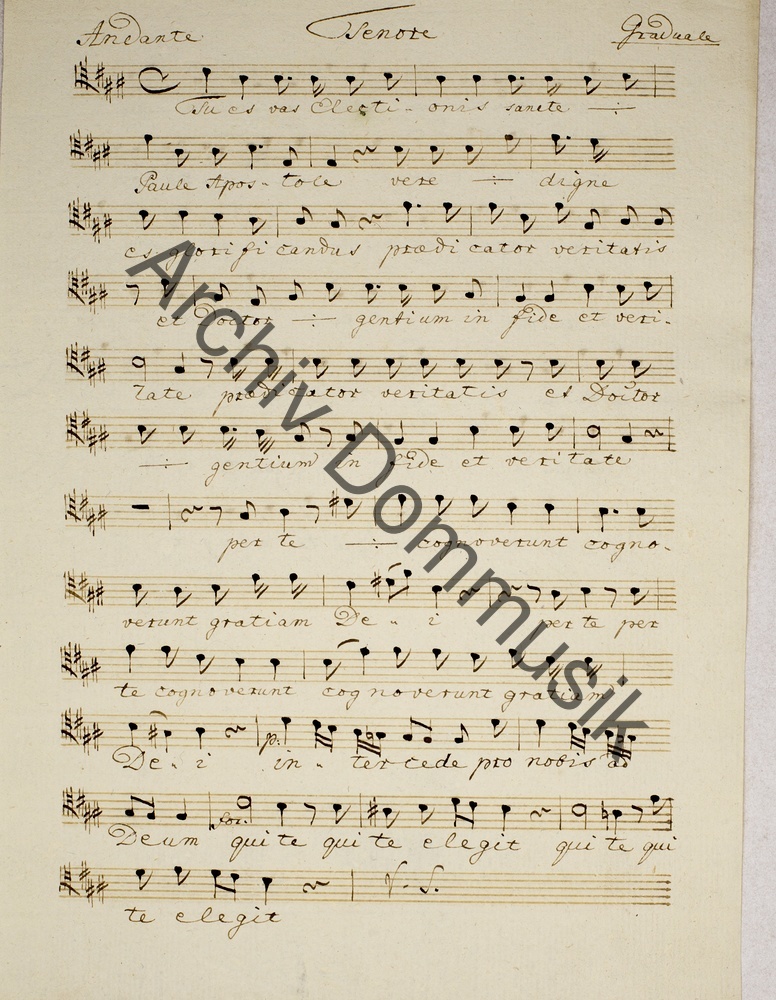 Andante Tenore Graduale
Tu es vas Electi- onis sancte ÷
Paule Apos- tole vere ÷ digne
es glorifi candus prædi cator veritatis
et Doctor ÷ gentium in fide et veri-
tate prædicator veritatis et Doctor
÷ gentium in fide et veritate
per te ÷ cognoverunt cogno-
verunt gratiam De- i per te per
te cognoverunt cog noverunt gratiam
De- i p: in- ter cede pro nobis ad
Deum for. qui te qui te elegit qui te qui
te elegit V. S.
Archiv Dommusik